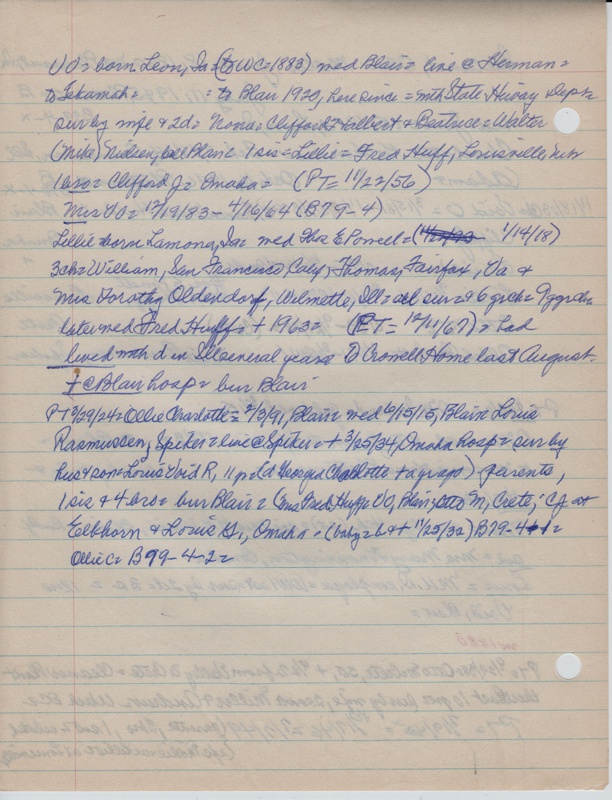 VO= born Leon, Ia=(to WC=1883) med Blair= live @ Herman=
to Tekamah= = to Blair 1920, here since = with State Hiway Dept=
sur by wife & 2d= Nona= Clifford Halbert & Beatrice= Walter
(Mike) Nielsen, both Blair= 1 sis= Lillie= Fred Huff, Louisville,
1 bro= Clifford J= Omaha= (PT= 11/22/56)
Mrs VO= 12/19/83- 4/16/64 (B79-4)
Lillie born Lamona, Ia= med Thos E Powell=( 1/14/18)
3ch= William, San Francisco, Caly, Thomas, Fairfax, Va &
Mrs Dorothy Oldendorf, Wilmette, Ill= all sur= & 6 grch= 9 ggrch=
later med Fred Huff= + 1963= (ET= 12/11/67)= had
lived with d in Ill several years= To Crowell Home last August=
+ @ Blair hosp= bur Blair
PT 3/29/24= Ollie Charlotte= 2/3/91, Blair= med 6/15/15, Blair= Louis
Rasmussen, Spiker= live @ Spiker= + 3/25/34, Omaha hosp= sur by
hus & son= Louis Void R, 11 p= (d Georgia Charlotte + ago) parents,
1 sis & 4 bro= bur Blair= (Mrs Fred Huff= VO, Blair; Otto M, Crete; CJ at
Elkhorn & Louis G, Omaha= (baby= b & + 11/25/32) B79-4-1=
Ollie C= B79-4-2=